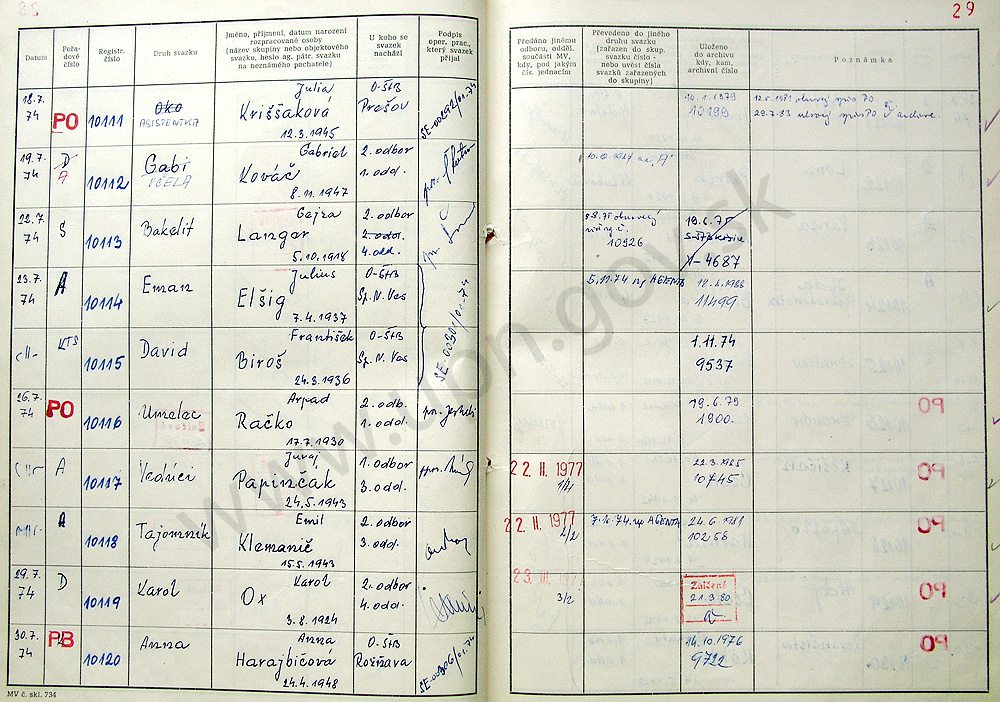 29
Datum
Pořadové číslo
Registr. číslo
Druh svazku
Jméno, příjmení, datum narození rozpracované osoby
(název skupiny nebo objektového svazku, heslo ag. pátr. svazku na neznámého pachatele)
U koho se svazek nachází
Podpis oper. prac., který svazek přijal
Předáno jinému odboru, odděl. součásti MV, kdy, pod jakým čís. jednacím
Převedeno do jiného druhu svazku (zařazen do skup. svazku číslo - nebo uvést čísla svazků zařazených do skupiny)
Uloženo do archivu kdy, kam, archivní číslo
Poznámka
18.7. 74
PO
10111
Oko
ASISTENTKA
Julia
Kriššaková
12.3.1945
O-ŠtB
Prešov
SE-00292/01-74
10.1.1979
10199
19.7. 74
D
A
10112
Gabi
VČELA
Gabriel
Kováč
8.11.1947
2. odbor
1. odd.
22.7. 74
S
10113
Bakelit
Gejza
Langer
5.10.1918
2. odbor
2. odd.
4. odd.
10926
19.6.75
X-4687
23.7. 74
A
10114
Eman
Julius
Elšig
7.4.1937
O-ŠtB
Sp. N. Ves
SE-00301/01-74
5.11.74 np AGENTA
11499
KTS
10115
David
František
Biroš
24.3.1936
O-ŠtB
Sp. N. Ves
1.11.74
9537
26.7. 74
PO
10116
Umelec
Arpad
Račko
17.7.1930
2. odb.
1. odd.
19.6.79
1900.
A
10117
Vedúci
Juraj
Papinčak
24.5.1943
1. odbor
3. odd.
22. II. 1977
1/2
22.3.1985
10745
A
10118
Tajomník
Emil
Klemanič
15.5.1943
2. odbor
3. odd.
22. II. 1977
2/2
7.10.74. np AGENTA
24.6.1981
10258
29.7. 74
D
10119
Karol
Karol
Ox
3.8.1924
2. odbor
4. odd.
23. III. 197
3/2
Zničené
21.3.80
30.7. 74
PB
10120
Anna
Anna
Harajbičová
24.4.1948
O-ŠtB
Rožňava
SE-00306/01-74
14.10.1976
9722
MV č. skl. 734
www.upn.gov.sk